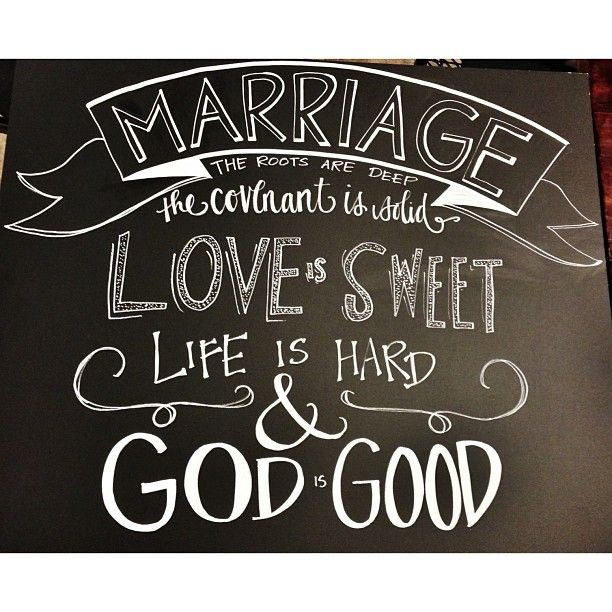 MARRIAGE
THE ROOTS ARE DEEP
the covenant is solid
LOVE IS SWEET
LIFE IS HARD
&
GOD IS GOOD